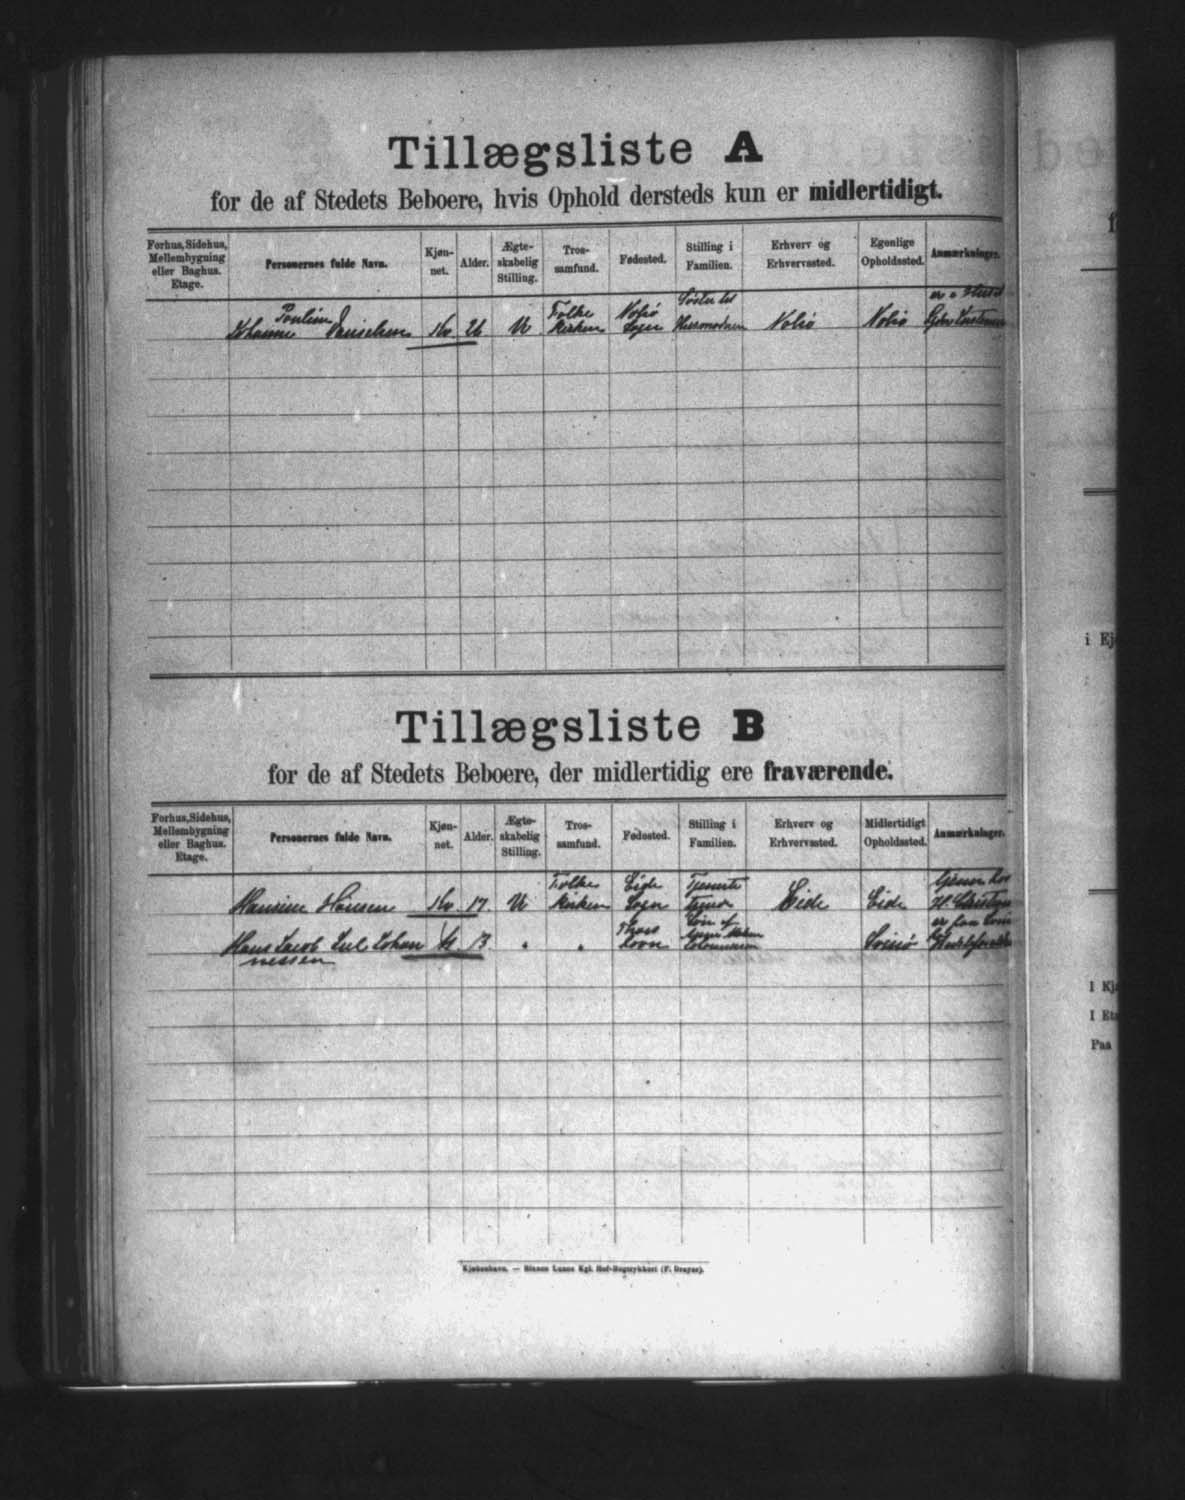 Tillægsliste A
for de af Stedets Beboere, hvis Ophold dersteds kun er midlertidigt.
Forhus, Sidehus, Mellembygning eller Baghus. Etage.
Personernes fulde Navn.
Kjøn-net.
Alder.
Ægte-skabelig Stilling.
Tros-samfund.
Fødested.
Stilling i Familien.
Erhverv og Erhvervssted.
Egentlige Opholdssted.
Anmærkninger.
Johanne Pouline Danielsen Kv 26 U Folke Kirken Nolsø Sogn Søster til Husmoderen Nolsø Nolsø
Tillægsliste B
for de af Stedets Beboere, der midlertidig ere fraværende.
Forhus, Sidehus, Mellembygning eller Baghus. Etage.
Personernes fulde Navn.
Kjøn-net.
Alder.
Ægte-skabelig Stilling.
Tros-samfund.
Fødested.
Stilling i Familien.
Erhverv og Erhvervssted.
Midlertidigt Opholdssted.
Anmærkninger.
Hansine Hansen Kv 17 U Folke Kirken Eide Sogn Tjeneste Eide Eide
Hans Jacob Juul Johan nessen M 13 " " Thors havn Søn af
Kjøbenhavn. — Bianco Lunos Kgl. Hof-Bogtrykkeri (F. Dreyer).
i Ej
I Kj
I Et
Paa